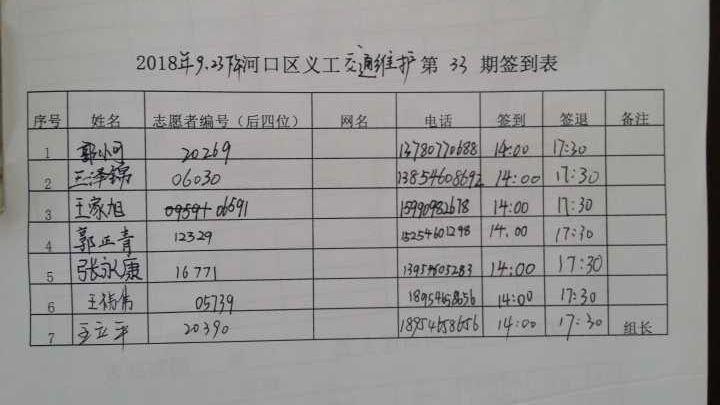 2018年9.23下午河口区义工交通维护第 33 期签到表
序号 姓名 志愿者编号（后四位） 网名 电话 签到 签退 备注
1 郭小可 20269 13780770688 14:00 17:30
2 王泽锦 06030 13854608692 14:00 17:30
3 王家旭 06591 15990982678 14:00 17:30
4 郭正青 12329 15254601298 14.00 17:30
5 张永康 16771 13954605283 14:00 17:30
6 王伟 05739 18954658656 14:00 17:30
7 王立平 20390 18954658656 14:00 17:30 组长